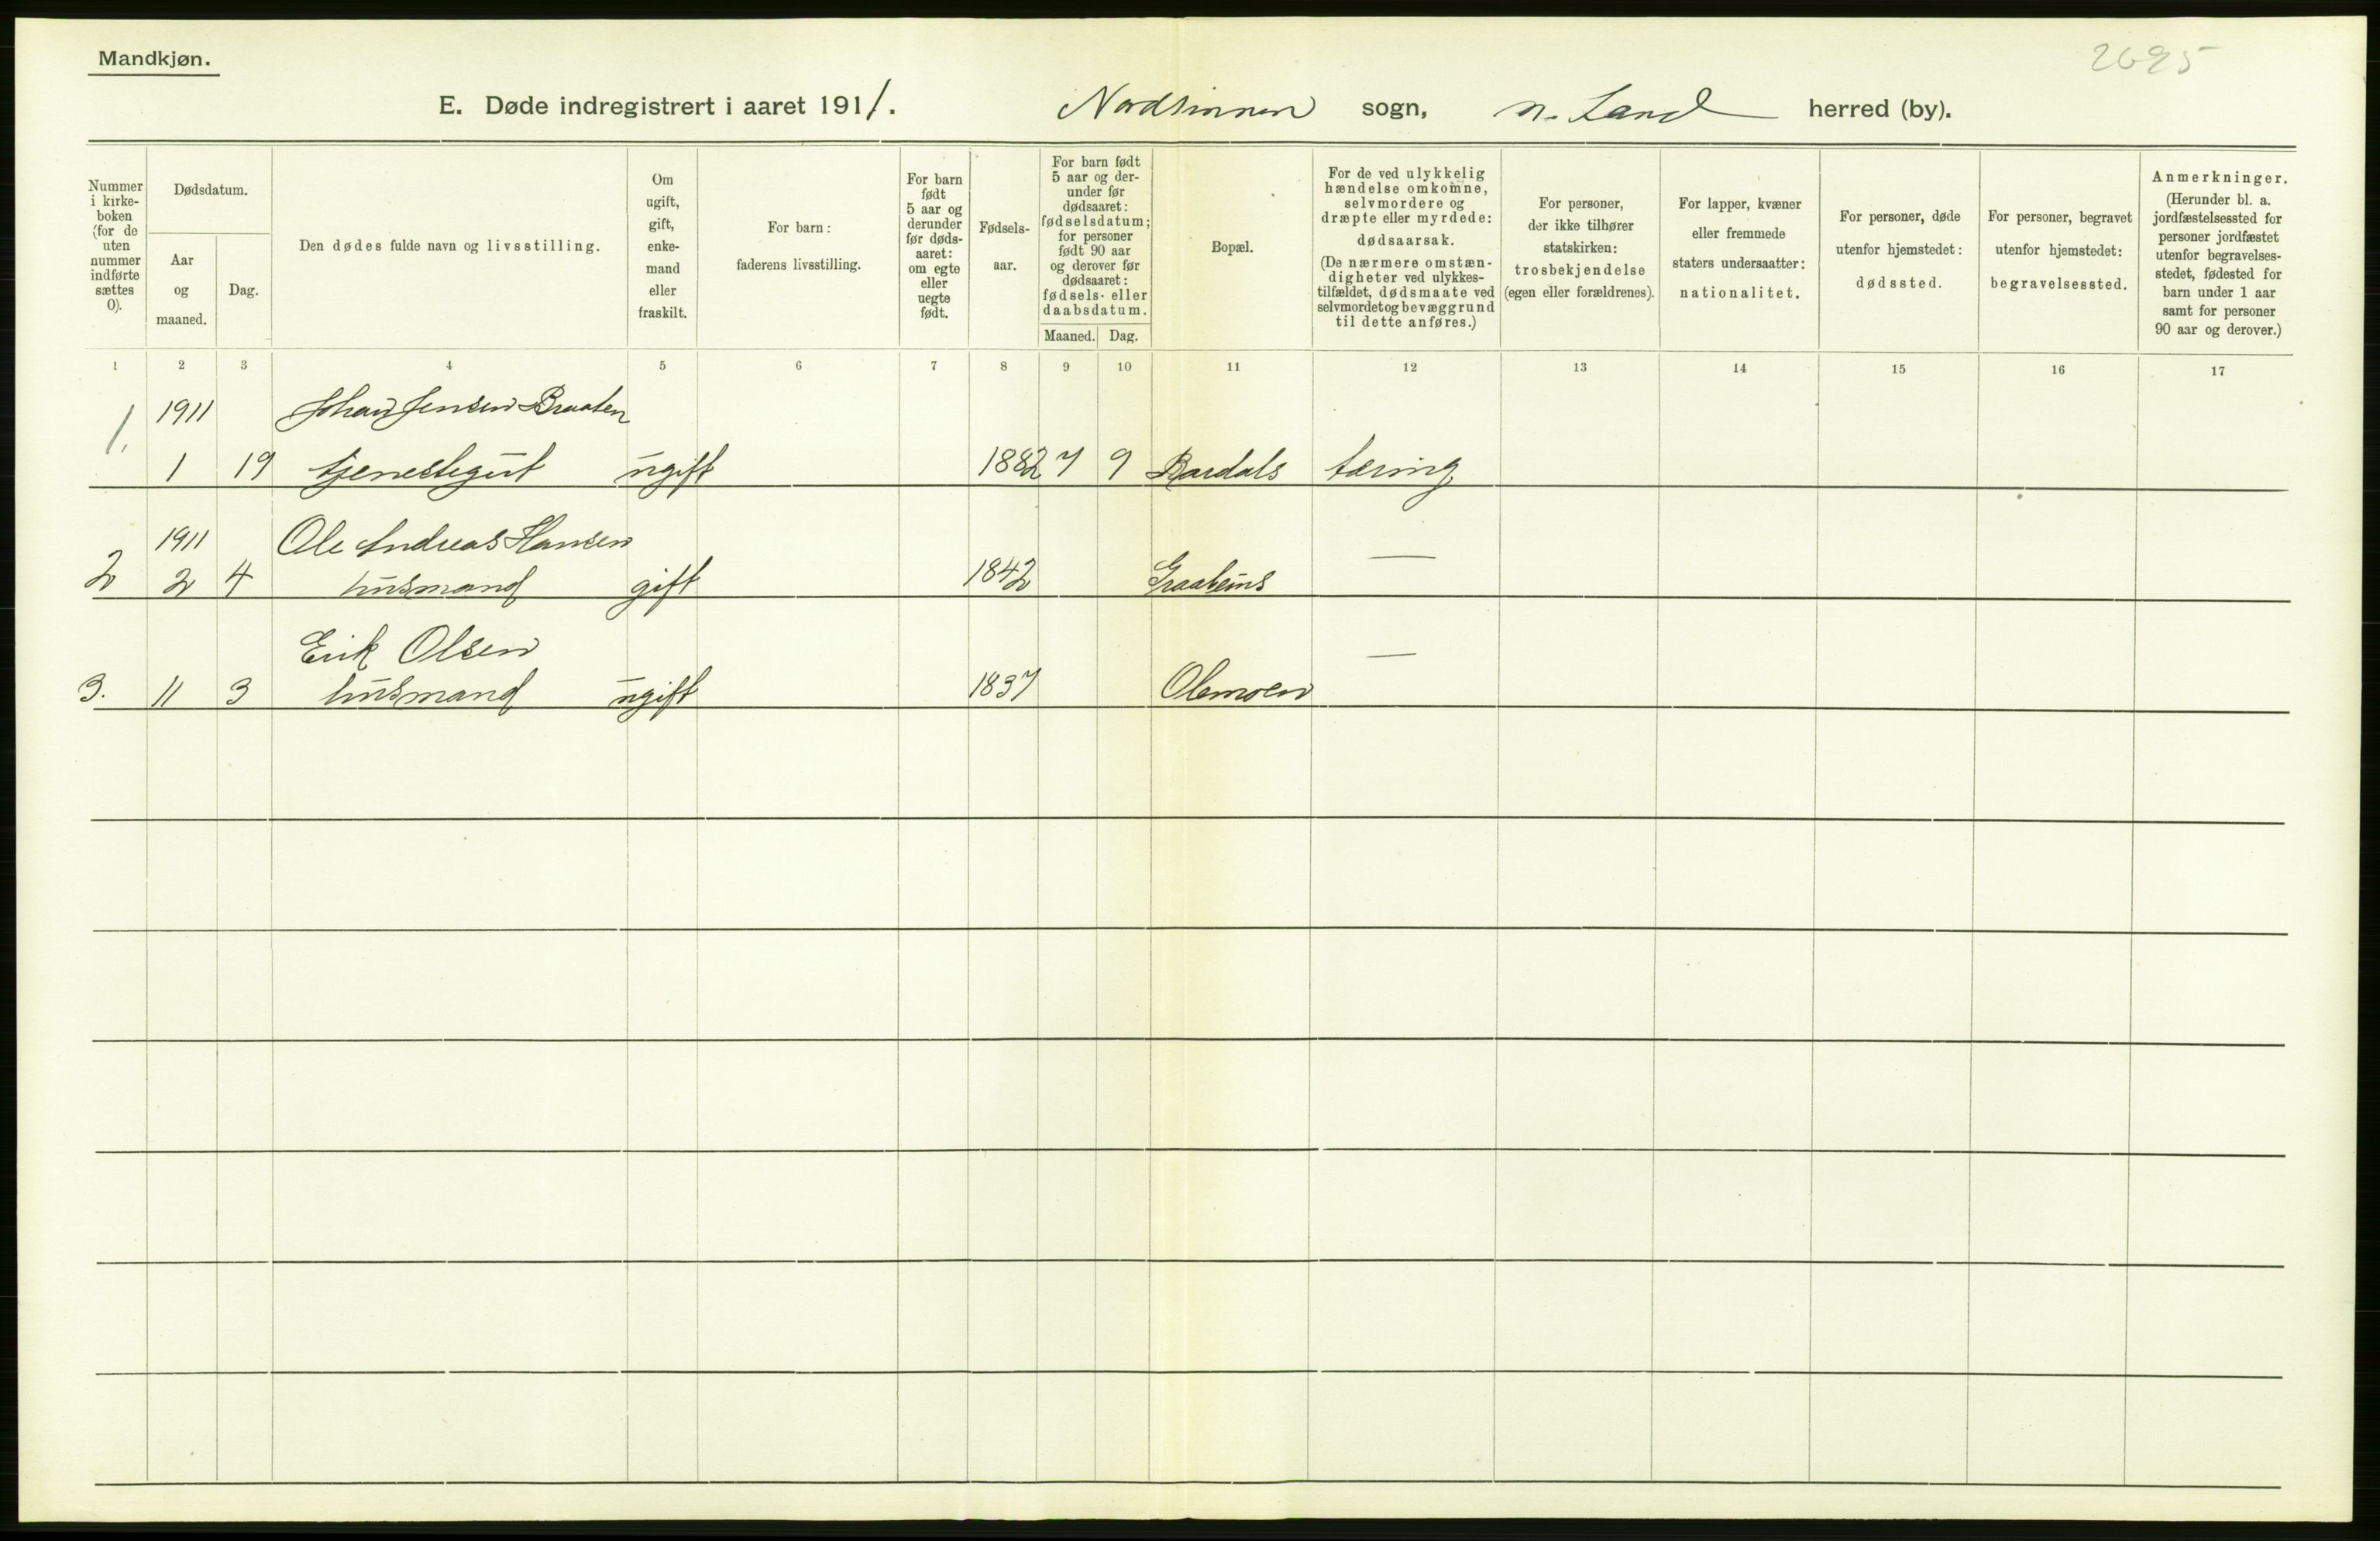 Mandkjøn.
2695
E. Døde indregistrert i aaret 1911. Nordsinnen sogn, N. Land herred (by).
Nummer i kirke- boken (for de uten nummer indførte sættes 0).
Dødsdatum.
Aar og maaned.
Dag.
Den dødes fulde navn og livsstilling.
Om ugift, gift, enke- mand eller fraskilt.
For barn: faderens livsstilling.
For barn født 5 aar og derunder før døds- aaret: om egte eller uegte født.
Fødsels- aar.
For barn født 5 aar og der- under før dødsaaret: fødselsdatum; for personer født 90 aar og derover før dødsaaret: fødsels- eller daabsdatum.
Maaned. Dag.
Bopæl.
For de ved ulykkelig hændelse omkomne, selvmordere og dræpte eller myrdede: dødsaarsak. (De nærmere omstæn- digheter ved ulykkes- tilfældet, dødsmaate ved selvmordet og bevæggrund til dette anføres.)
For personer, der ikke tilhører statskirken: trosbekjendelse (egen eller forældrenes).
For lapper, kvæner eller fremmede staters undersaatter: nationalitet.
For personer, døde utenfor hjemstedet: dødssted.
For personer, begravet utenfor hjemstedet: begravelsessted.
Anmerkninger. (Herunder bl. a. jordfæstelsessted for personer jordfæstet utenfor begravelses- stedet, fødested for barn under 1 aar samt for personer 90 aar og derover.)
1 2 3 4 5 6 7 8 9 10 11 12 13 14 15 16 17
1. 1911 Johan Jensen Braaten
1 19 tjenestegut ugift 1882 7 9 Bardals tæring
1911 Ole Andreas Hansen —
2 2 4 husmand gift 1842 Graabeins
Erik Olsen —
3. 11 3 husmand ugift 1837 Olemoen